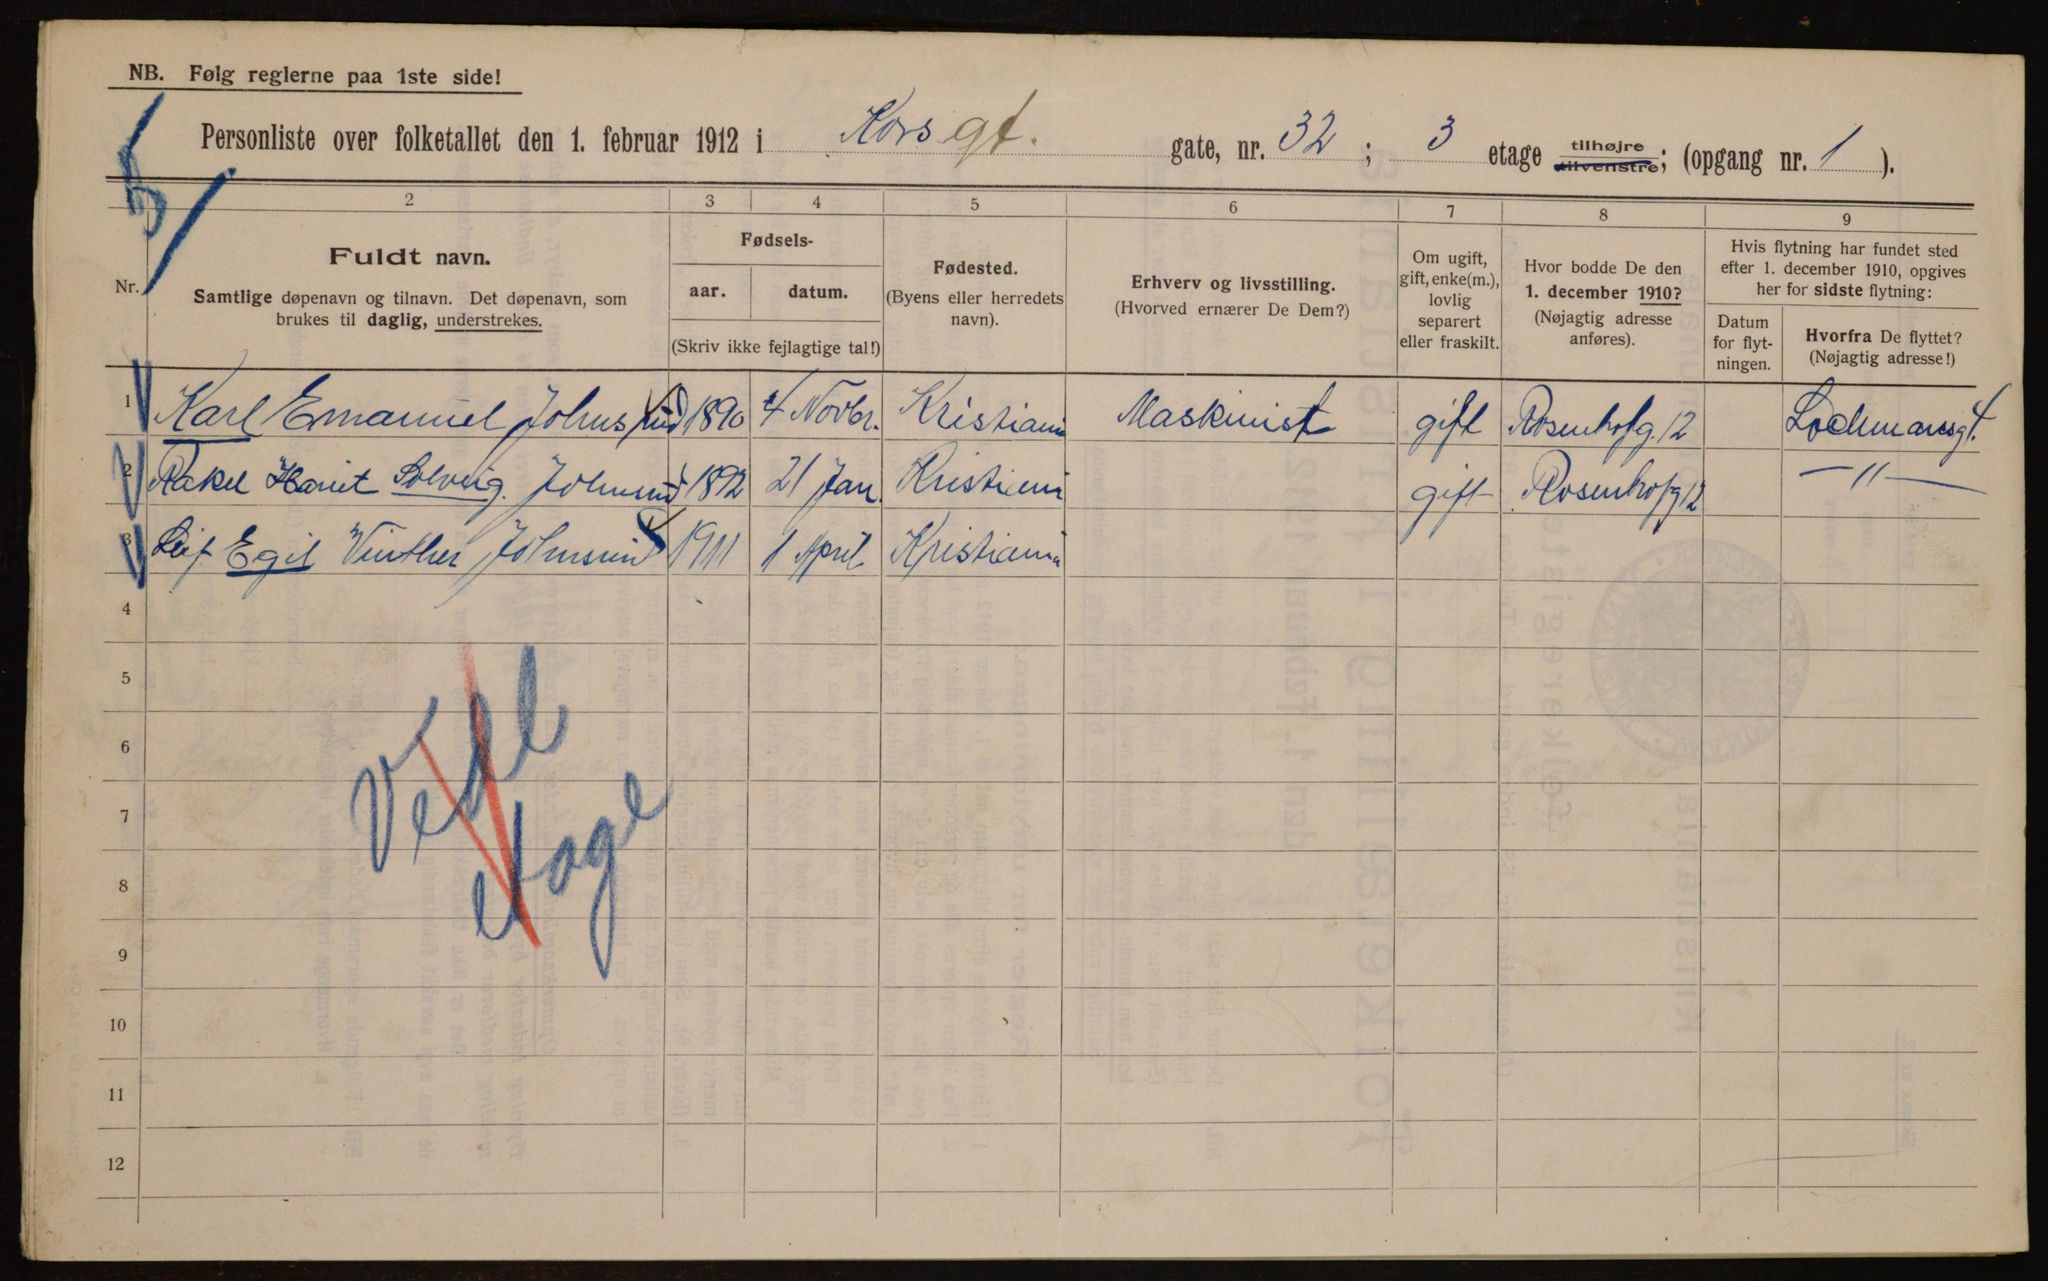 NB. Følg reglerne paa 1ste side!
Personliste over folketallet den 1. februar 1912 i Korsgt. gate, nr. 32 ; 3 etage tilhøjre tilvenstre; (opgang nr. 1 ).
2 3 4 5 6 7 8 9
Nr.
Fuldt navn.
Samtlige døpenavn og tilnavn. Det døpenavn, som
brukes til daglig, understrekes.
Fødsels-
aar. datum.
(Skriv ikke fejlagtige tal!)
Fødested.
(Byens eller herredets
navn).
Erhverv og livsstilling.
(Hvorved ernærer De Dem?)
Om ugift,
gift, enke(m.),
lovlig
separert
eller fraskilt.
Hvor bodde De den
1. december 1910?
(Nøjagtig adresse
anføres).
Hvis flytning har fundet sted
efter 1. december 1910, opgives
her for sidste flytning:
Datum
for flyt-
ningen.
Hvorfra De flyttet?
(Nøjagtig adresse!)
1 Karl Emanuel Johnsrud 1890 4 Novbr. Kristiania Maskinist gift Rosenhofg. 12 Lochmansgt.
2 Rakel Hariet Solveig. Johnsrud 1892 21 Jan. Kristiania gift Rosenhofg 12 — " —
3 Leif Egil Winther Johnsrud 1911 1 April Kristiania
4
5
6
7
8
9
10
11
12
Vedl
etage